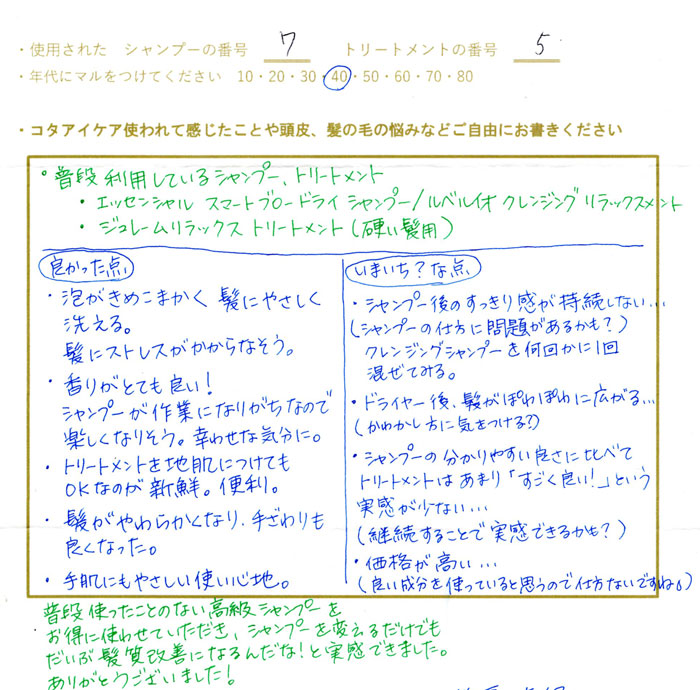 ・使用された シャンプーの番号 7 トリートメントの番号 5
・年代にマルをつけてください 10・20・30・40・50・60・70・80
・コタアイケア使われて感じたことや頭皮、髪の毛の悩みなどご自由にお書きください
・普段利用しているシャンプー、トリートメント
・エッセンシャル スマートブロードライ シャンプー/ルベルイオ クレンジング リラックスメント
・ジュレームリラックス トリートメント(硬い髪用)
良かった点
・泡がきめこまかく 髪にやさしく
洗える。
髪にストレスがかからなそう。
・香りがとても良い!
シャンプーが作業になりがちなので
楽しくなりそう。幸わせな気分に。
・トリートメントを地肌につけても
OKなのが新鮮。便利。
・髪がやわらかくなり、手ざわりも
良くなった。
・手肌にもやさしい使い心地。
いまいち?な点
・シャンプー後のすっきり感が持続しない…
(シャンプーの仕方に問題があるかも?)
クレンジングシャンプーを何回かに1回
混ぜてみる。
・ドライヤー後、髪がぽわぽわに広がる…
(かわかし方に気をつける?)
・シャンプーの分かりやすい良さに比べて
トリートメントはあまり「すごく良い!」という
実感が少ない…
(継続することで実感できるかも?)
・価格が高い…
(良い成分を使っていると思うので仕方ないですね。)
普段使ったことのない高級シャンプーを
お得に使わせていただき、シャンプーを変えるだけでも
だいぶ髪質改善になるんだな!と実感できました。
ありがとうございました!